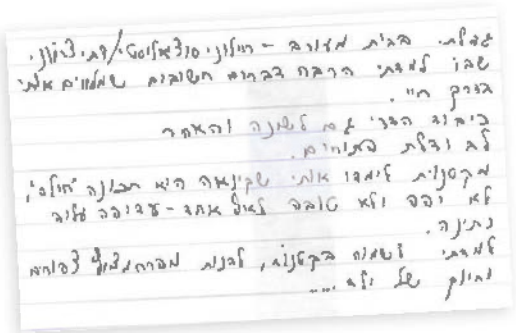 גדלתי בבית מעורב - חילוני סוציאליסטי/דתי ציוני,
שבו למדתי הרבה דברים חשובים שמלווים אותי
בדרך חיי.
כיבוד הדדי גם לשונה והאחר
לב ודלת פתוחים.
מקטנות לימדו אותי שקינאה היא תכונה "חולה",
לא יפה ולא טובה לאף אחד - עדיפה עליה
נתינה.
למדתי לשמוח בקטנות, להנות מפרח מציוץ צפורים
וחיוק של ילד.....